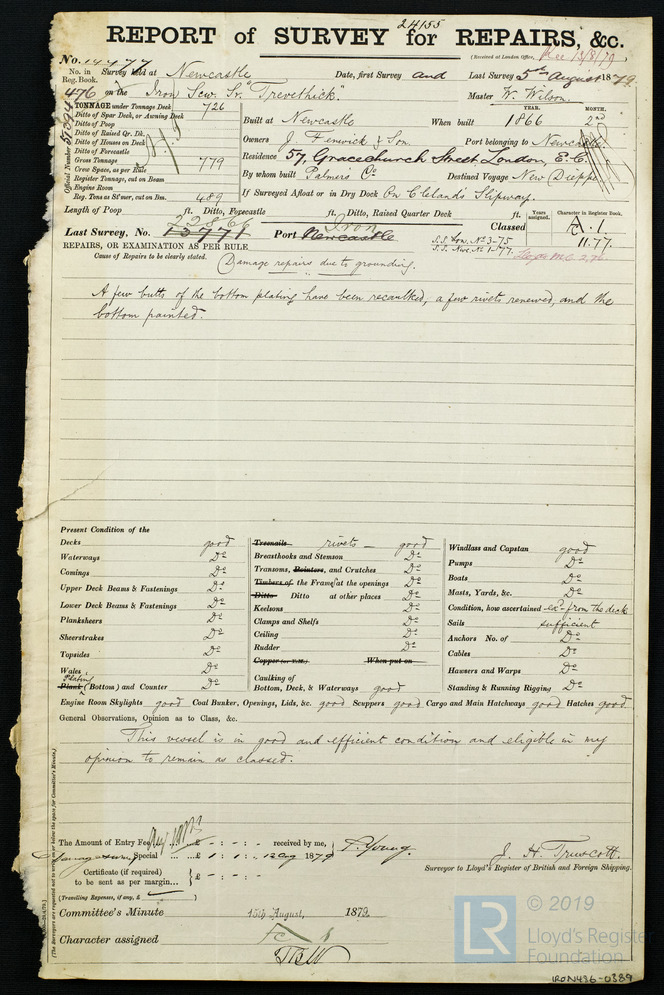 24155
REPORT of SURVEY for REPAIRS, &c.
(Received at London Office, 13/8/79
No. 14477
No. in Reg. Book. Survey held at Newcastle Date, first Survey and Last Survey 5th August 1879
476 on the Iron Scw. Sr. "Trevethick". Master W. Wilson
TONNAGE under Tonnage Deck 726
Ditto of Spar Deck, or Awning Deck
Ditto of Poop
Ditto of Raised Qr. Dk.
Ditto of Houses on Deck
Ditto of Forecastle
Gross Tonnage 779
Crew Space, as per Rule
Register Tonnage, cut on Beam
Engine Room
Reg. Tons as Stmer, cut on Bm. 489
Official Number
YEAR. MONTH.
Built at Newcastle When built 1866 2nd
Owners J. Fenwick & Son. Port belonging to Newcastle
Residence 57, Gracechurch Street London, E.C.
By whom built Palmers Co. Destined Voyage New Dieppe
If Surveyed Afloat or in Dry Dock On Clelands Slipway.
Length of Poop ft. Ditto, Forecastle ft. Ditto, Raised Quarter Deck ft.
Years assigned. Character in Register Book.
22866 Iron
Last Survey, No. 13771 Port Newcastle Classed A. 1.
S.S. Lon. No. 3-75
S.S. Nwc. No. 1-77. 11.77.
REPAIRS, OR EXAMINATION AS PER RULE
Cause of Repairs to be clearly stated. Damage repairs due to grounding.
A few butts of the bottom plating have been recaulked, a few rivets renewed, and the
bottom painted.
Present Condition of the
Decks good
Waterways Do
Comings Do
Upper Deck Beams & Fastenings Do
Lower Deck Beams & Fastenings Do
Planksheers Do
Sheerstrakes Do
Topsides Do
Wales Do
Plating
Plank (Bottom) and Counter Do
Treenails rivets good
Breasthooks and Stemson Do
Transoms, Pointers, and Crutches Do
Timbers of the Frames at the openings Do
Ditto Ditto at other places Do
Keelsons Do
Clamps and Shelfs Do
Ceiling Do
Rudder Do
Copper (or Y.M.) When put on
Caulking of
Bottom, Deck, & Waterways good
Windlass and Capstan good
Pumps Do
Boats Do
Masts, Yards, &c. Do
Condition, how ascertained exn from the deck
Sails sufficient
Anchors No. of Do
Cables Do
Hawsers and Warps Do
Standing & Running Rigging Do
Engine Room Skylights good Coal Bunker, Openings, Lids, &c. good Scuppers good Cargo and Main Hatchways good Hatches good
General Observations, Opinion as to Class, &c.
This vessel is in good and efficient condition and eligible in my
opinion to remain as classed.
The Amount of Entry Fee ... £ - : - : - received by me, T. Young.
Special ... £ 1 : 1 : - 12 Aug 1879
Certificate (if required)
to be sent as per margin... £ - : - : -
(Travelling Expenses, if any, £ )
J. H. Truscott.
Surveyor to Lloyd's Register of British and Foreign Shipping.
Committee's Minute 15th August, 1879.
Character assigned
© 2019
LR
Lloyd's Register
Foundation
IRON436-0389